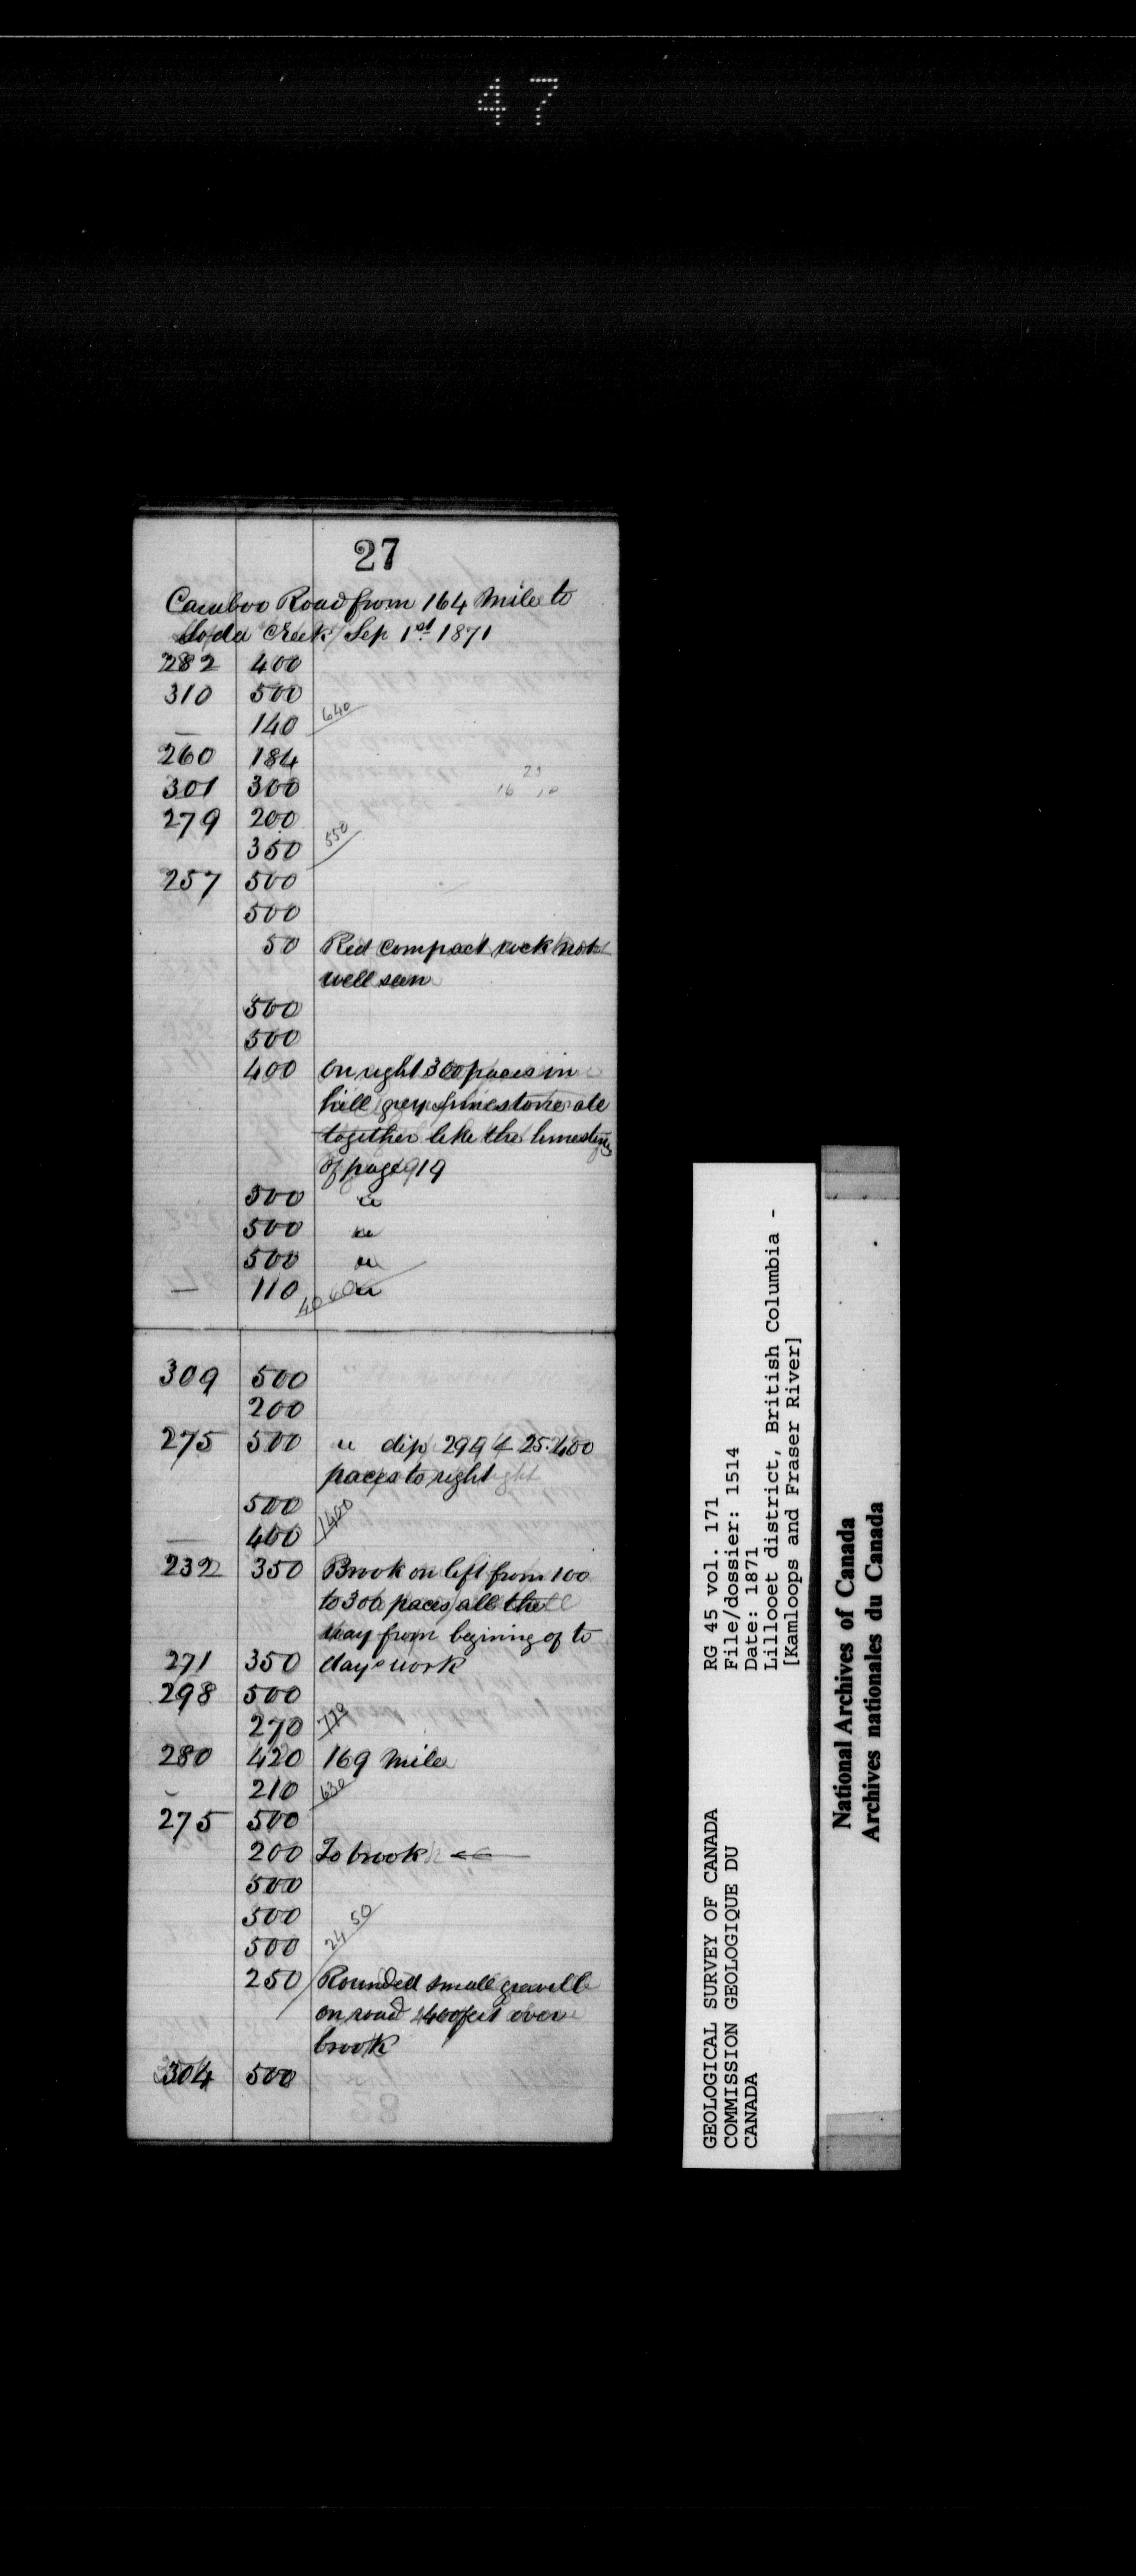 47
27
Cariboo Road from 164 Mile to
Soda Creek / Sep 1st 1871
282 400
310 500
— 140 640
260 184
301 300
279 200
350 550
257 500
500
50 Red compact rock not
well seen
500
500
400 On right 300 paces in
hill grey limestone all
together like the limestone
of page 19
500 "
500 "
500 "
— 110 4060 "
309 500
200
275 500 " dip 299 < 25. 400
paces to right
500
— 400 1400
232 350 Brook on left from 100
to 300 paces all the
way from begining of to
271 350 days work
298 500
270 770
280 420 169 Mile
- 210 630
275 500
200 To brook ←
500
500
500 2450
250 Rounded small gravelle
on road feet over
brook
304 500
GEOLOGICAL SURVEY OF CANADA
COMMISSION GEOLOGIQUE DU
CANADA
RG 45 vol. 171
File/dossier: 1514
Date: 1871
Lillooet district, British Columbia -
[Kamloops and Fraser River]
National Archives of Canada
Archives nationales du Canada